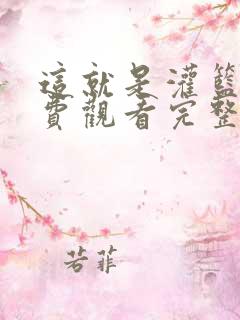 這就是灌籃
費觀看完整
若菲